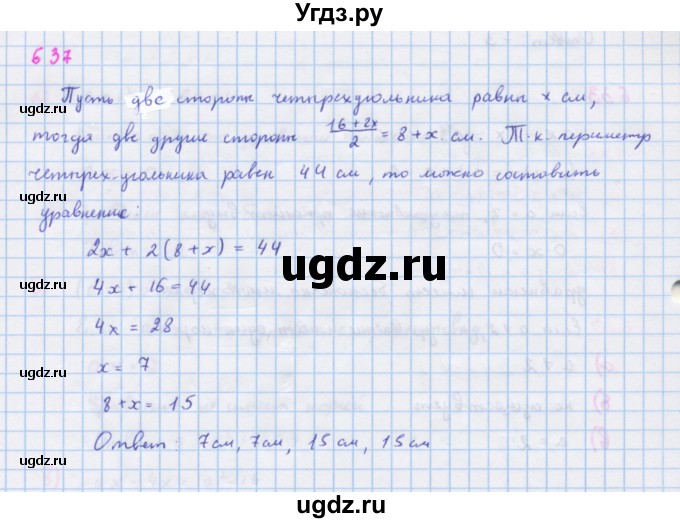 Угдз.ру
637
Пусть две стороны четырехугольника равны x см,
тогда две другие стороны (16 + 2x)/2 = 8 + x см. Т.к. периметр
четырех-угольника равен 44 см, то можно составить
уравнение:
2x + 2(8 + x) = 44
4x + 16 = 44
4x = 28
x = 7
8 + x = 15
Ответ: 7 см, 7 см, 15 см, 15 см
ugdz.ru
ugdz.ru
ugdz.ru
ugdz.ru
ugdz.ru
ugdz.ru
ugdz.ru
ugdz.ru
ugdz.ru